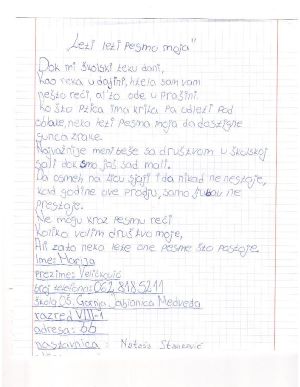 Leti leti pesmo moja"
Dok mi školski teku dani,
kao reka u daljini, htela sam vam
nešto reći, al to ode u prašini.
ko što ptica ima krila pa odleti pod
oblake, neka leti pesma moja da dostigne
sunca zrake.
Najvažnije meni beše sa društvom u školskoj
sali dok smo još sad mali.
Da osmeh na licu sjaji i da nikad ne nestaje,
kad godine ove prođu, samo ljubav ne
prestaje.
Ne mogu kroz pesmu reći
koliko volim društvo moje,
Ali zato neka lete one pesme što postoje.
Ime: Marija
prezime: Veličković
broj telefona: 062 818 5211
škola: OŠ. Gornja Jablanica Medveđa
razred VIII-1
adresa: bb
nastavnica: Nataša Stanković